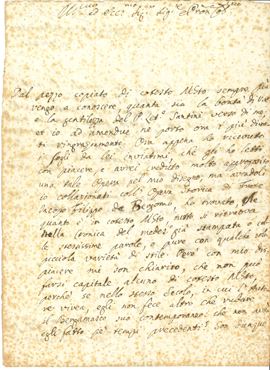 Dal pezzo copiato di cotesto MSto sempre più
vengo a conoscere, quanta sia la bontà di
e la gentilezza del P. Santini verso di me,
et io ad amendue ne porto ora i più divoti
ringraziamenti. Ora appena ho ricevuto
i fogli da lei inviatimi, che gli ho letti
con piacere e avrei veduto molto
una tale Opera pel mio disegno, ma avendoli
io collazionati coll' Opera Storica di
Jacopo Filippo da Bergamo, ho trovato che
quanto è in cotesto MSto, tutto si ritrovava
nella Cronica del med.o già stampata e colle
stessissime parole, e pure con qualche sola
picciola varietà di stile. Però con mio dis
piacere mi son chiarito, che non può
farsi capitale alcuno di cotesto MSto,
perchè se nello stesso secolo, in cui l'Autore
viveva, egli non fece altro che
il Bergamasco suo contemporaneo: che non avrà
egli fatto pe' tempi precedenti? Son dunque